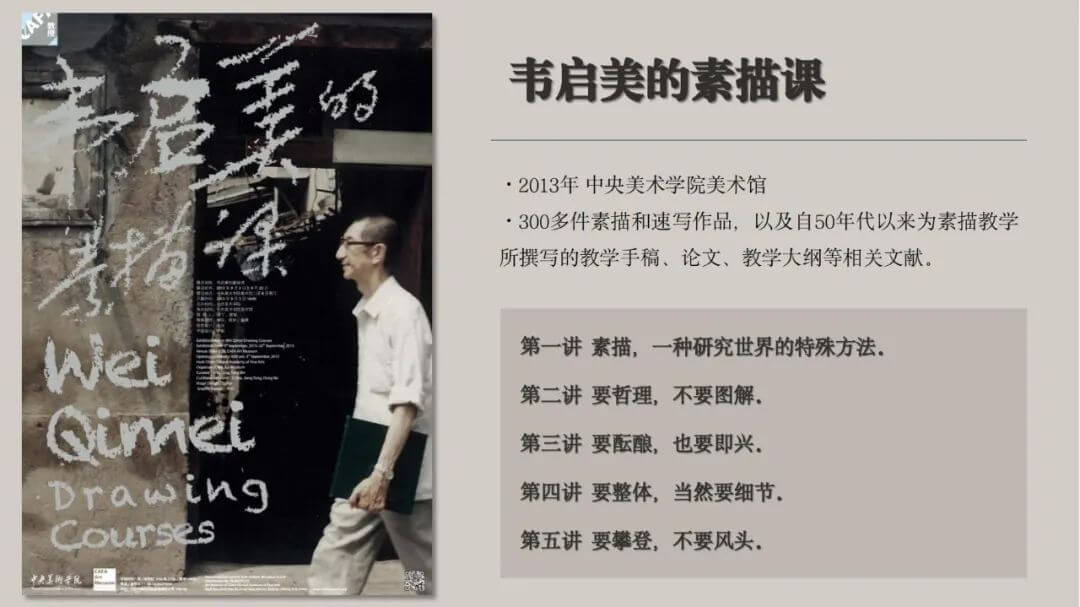 CAFA
教授
韦启美的
素描课
Wei
Qimei
Drawing
Courses
中央美術学院
CAFA
Art
Museum
韦启美的素描课
·2013年 中央美术学院美术馆
·300多件素描和速写作品，以及自50年代以来为素描教学
所撰写的教学手稿、论文、教学大纲等相关文献。
第一讲 素描，一种研究世界的特殊方法．
第二讲 要哲理，不要图解．
第三讲 要酝酿，也要即兴．
第四讲 要整体，当然要细节．
第五讲 要攀登，不要风头．